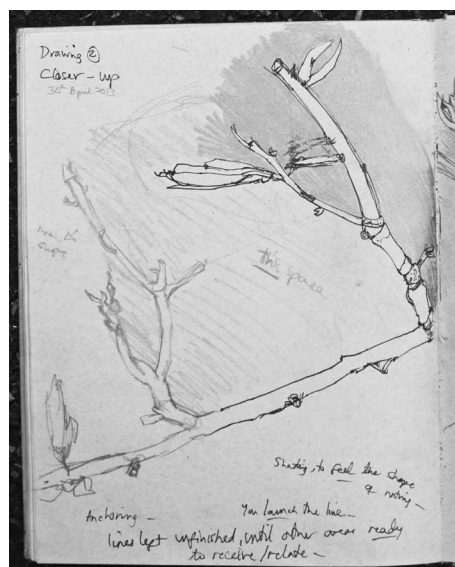 Drawing ②
Closer-up
30th April
this space
Shading, to feel the shape
of nothing —
Anchoring — You launch the line —
lines left unfinished, until other areas ready
to receive/relate —